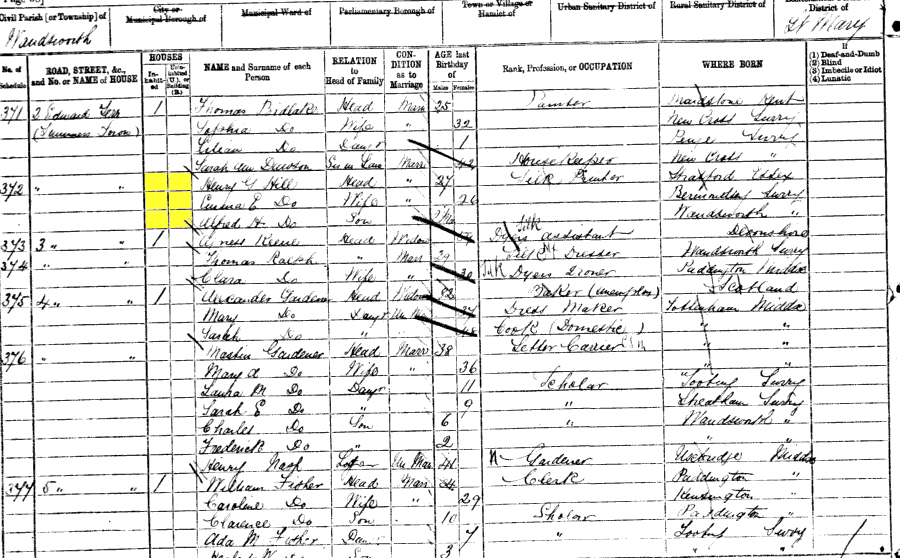 Civil Parish [or Township] of
City or Municipal Borough of
Municipal Ward of
Parliamentary Borough of
Town or Village or Hamlet of
Urban Sanitary District of
Rural Sanitary District of
District of
Wandsworth
St Mary
No. of Schedule
ROAD, STREET, &c., and No. or NAME of HOUSE
HOUSES
In-habited
Uninhabited (U.), or Building (B.)
NAME and Surname of each Person
RELATION to Head of Family
CONDITION as to Marriage
AGE last Birthday of
Males
Females
Rank, Profession, or OCCUPATION
WHERE BORN
If
(1) Deaf-and-Dumb
(2) Blind
(3) Imbecile or Idiot
(4) Lunatic
371 2 Edward Terr 1 Thomas Head Marr 25 Maidstone Kent
Sophia Do Wife " 32 New Cross Surry
Lilian Do Daur 1 Penge Surry
Sarah Ann Dawson Marr 42 House Keeper New Cross "
372 " " Henry G Hill Head " 27 Silk Printer Stratford Essex
Emma E Do Wife " 26 Bermondsey Surry
Alfred H Do Son Wandsworth "
373 3 " " 1 Head Widow Dyers assistant Devonshire
374 " " Thomas Ralph " Marr 29 Silk Dresser Wandsworth Surry
Clara Do Wife " 30 Silk Dyers Ironer Paddington Middx
375 4 " " 1 Alexander Gardener Head Widow 82 Baker (unemployed) Scotland
Mary Do Daur Un Mar Dress Maker Tottenham Middx
Sarah Do " Cook (Domestic) " "
376 " " Gardener Head Marr 38 Letter Carrier " "
Mary A Do Wife " 36 " "
Laura M Do Daur 11 Scholar Tooting Surry
Sarah E Do " 9 " Streatham Surry
Charles Do Son 6 " Wandsworth "
Frederick Do " 2 " "
Henry Nash Un Mar Gardener Uxbridge Middx
377 5 " " 1 William Fisher Head Marr 34 Clerk Paddington "
Caroline Do Wife " 29 Kensington "
Clarence Do Son 10 Scholar Paddington "
Ada M Fisher Daur 7 Tooting Surry
Son 3 " "